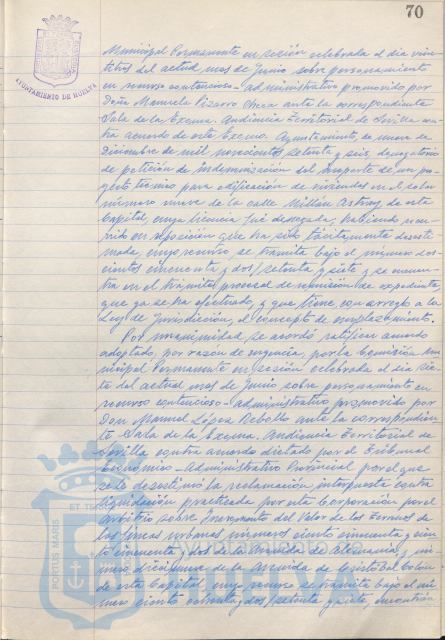 70
AYUNTAMIENTO DE HUELVA
Municipal Permanente en sesión celebrada el día vein-
titrés del actual mes de Junio sobre personamiento
en recurso contencioso-administrativo promovido por
Doña Manuela Pizarro ante la correspondiente
Sala de la Excma. Audiencia Territorial de Sevilla con-
tra acuerdo de este Excmo. Ayuntamiento, de nueve de
Diciembre de mil novecientos setenta y seis, denegatorio
de petición de indemnización del importe de un pro-
yecto técnico para edificación de viviendas en el solar
número nueve de la calle Millán Astray, de esta
Capital, cuya licencia fué denegada, habiendo recu-
rrido en reposición que ha sido tácitamente desesti-
mada, cuyo recurso se tramita bajo el número dos-
cientos cincuenta y dos/setenta y siete y se encuen-
tra en el trámite procesal de remisión de expediente,
que ya se ha efectuado, y que tiene con arreglo a la
Ley de Jurisdicción, el concepto de emplazamiento.
Por unanimidad se acordó ratificar acuerdo
adoptado, por razón de urgencia, por la Comisión Mu-
nicipal Permanente en sesión celebrada el día sie-
te del actual mes de Junio sobre personamiento en
recurso contencioso-administrativo promovido por
Don Manuel López Rebollo ante la correspondien-
te Sala de la Excma. Audiencia Territorial de
Sevilla contra acuerdo dictado por el Tribunal
Económico-Administrativo Provincial por el que
se le desestimó la reclamación interpuesta contra
liquidación practicada por esta Corporación por el
Arbitrio sobre Incremento del Valor de los Terrenos de
las fincas urbanas números ciento cincuenta y cien-
to cincuenta y dos de la Avenida de Alemania y nú-
mero diecinueve de la Avenida de Cristóbal Colón
de esta Capital, cuyo recurso se tramita bajo el nú-
mero ciento ochenta y dos/setenta y siete, encontrán-
PORTUS MARIS
ET TERRAE